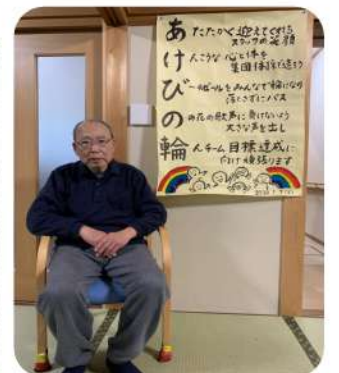 あたたかく迎えてくれた
スタッフの笑顔
けんこうな心と体を
集団体操で造ろう
びーちボールをみんなで輪になり
落とさずにパス
のの花の歌声に負けないよう
大きな声を出し
輪んチーム目標達成に
向け頑張ります